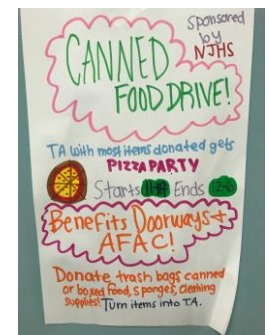 Sponsored
by
NJHS
CANNED
FOOD DRIVE!
TA with most items donated gets
PIZZA PARTY
Starts Ends
Benefits Doorways &
AFAC!
Donate trash bags canned
or boxed food, sponges, clething
supplies! Turn items into T.A.